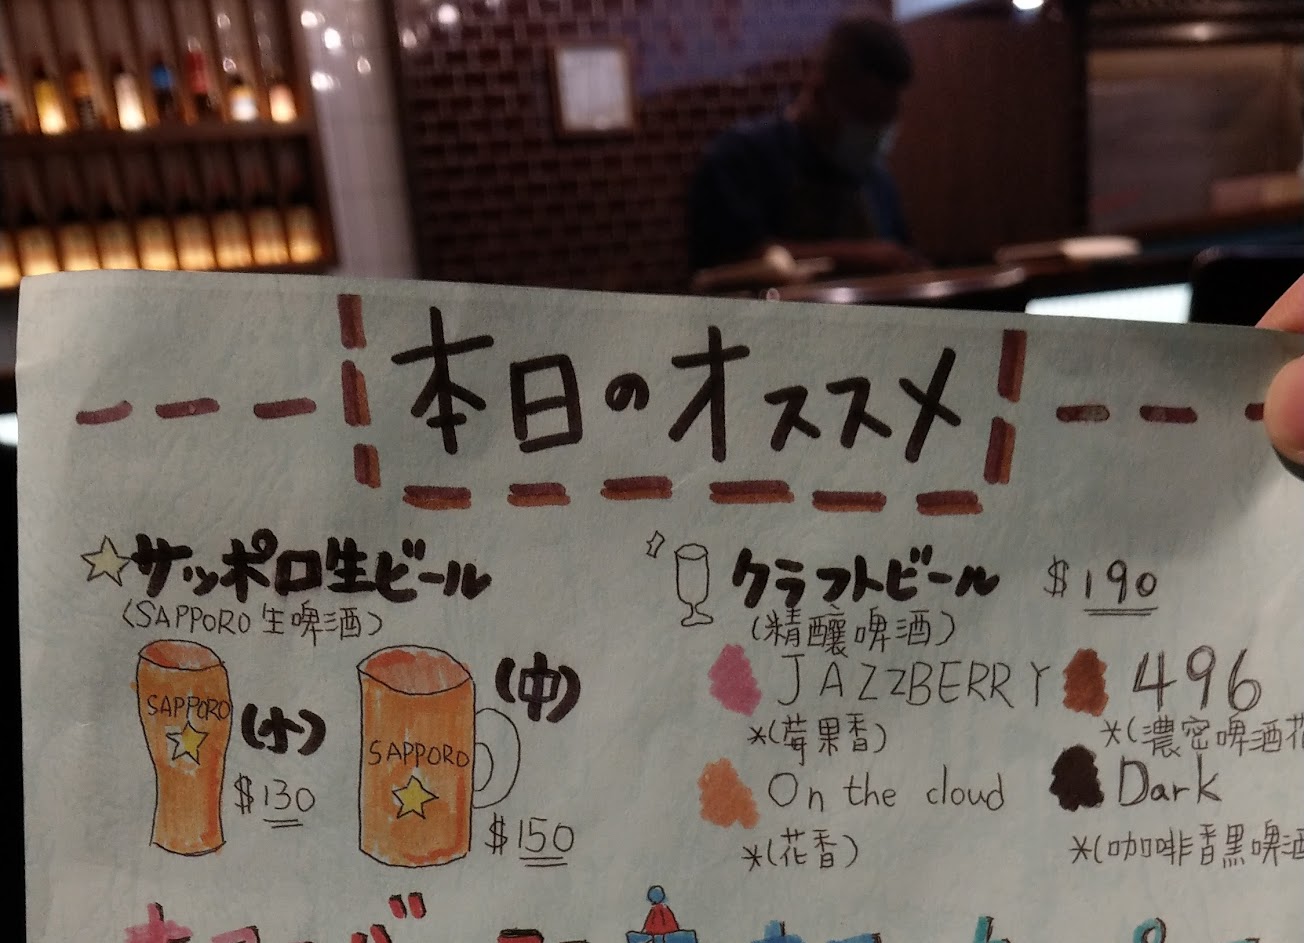 本日のオススメ
サッポロ生ビール
(SAPPORO 生啤酒)
SAPPORO
(小)
$130
SAPPORO
(中)
$150
クラフトビール $190
(精釀啤酒)
JAZZBERRY
*(莓果香)
496
*(濃密啤酒花
On the cloud
*(花香)
Dark
*(咖啡香黑啤酒